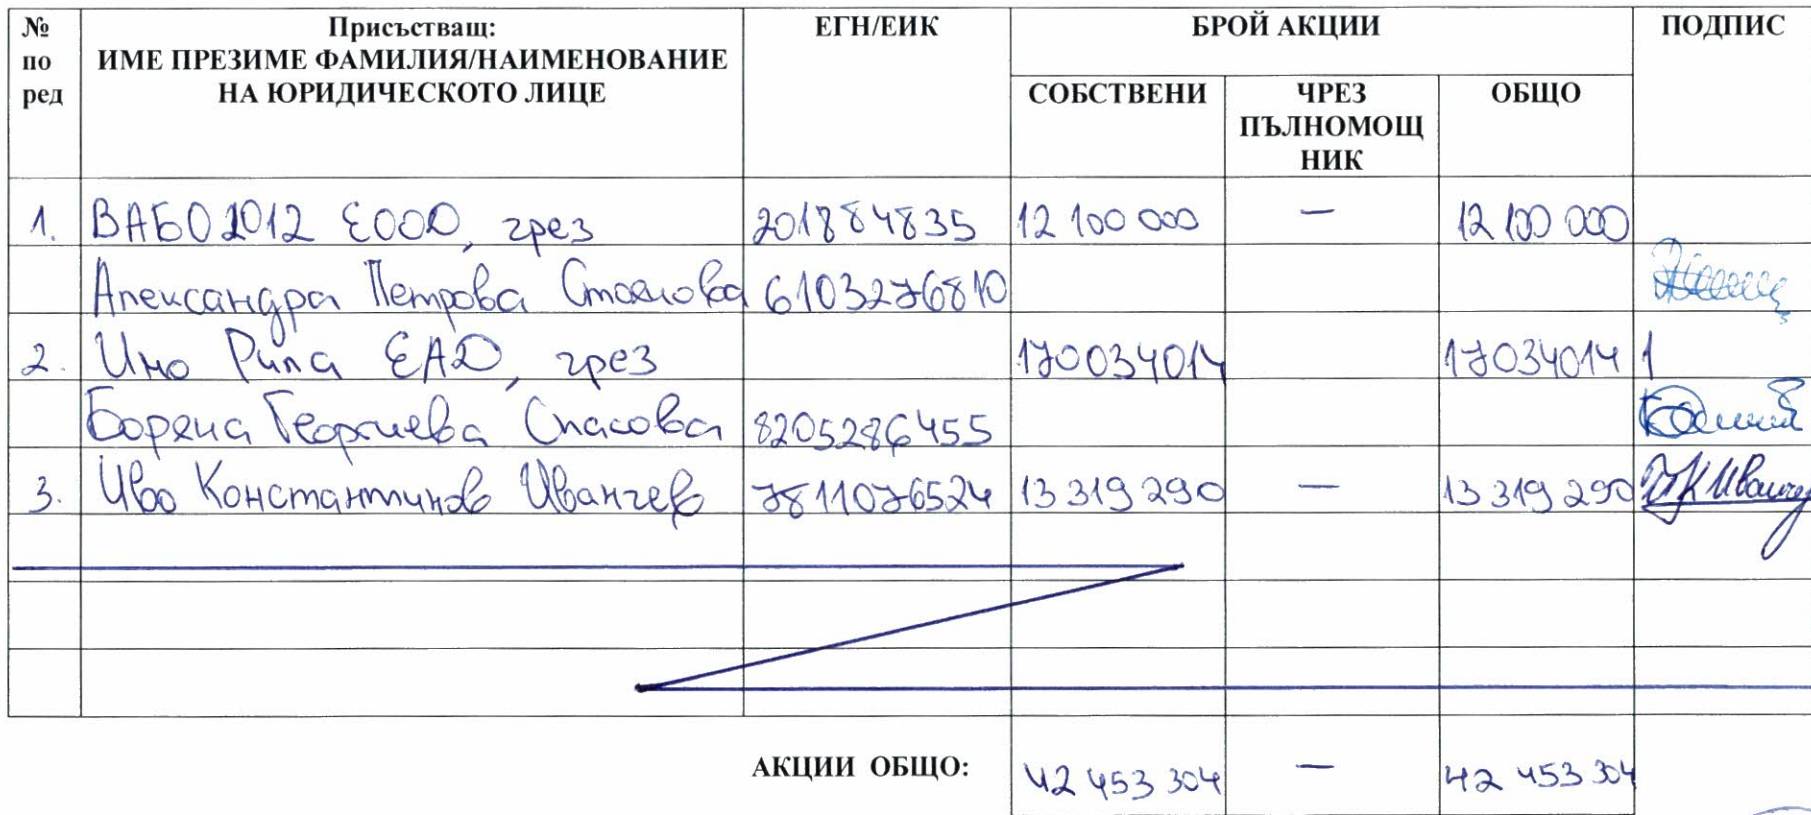 № по ред Присъстващ: ИМЕ ПРЕЗИМЕ ФАМИЛИЯ/НАИМЕНОВАНИЕ НА ЮРИДИЧЕСКОТО ЛИЦЕ ЕГН/ЕИК БРОЙ АКЦИИ ПОДПИС
СОБСТВЕНИ ЧРЕЗ ПЪЛНОМОЩНИК ОБЩО
1. ВАБО 2012 ЕООД, чрез 201884835 12 100 000 — 12 100 000
Александра Петрова Стоянова 6103276810
2. Ино Рила ЕАД, чрез 170034014 17034014 1
Боряна Георгиева Спасова 8205286455
3. Иво Константинов Иванчев 7811076524 13 319 290 — 13 319 290 ИК Иванчев
АКЦИИ ОБЩО: 42 453 304 — 42 453 304